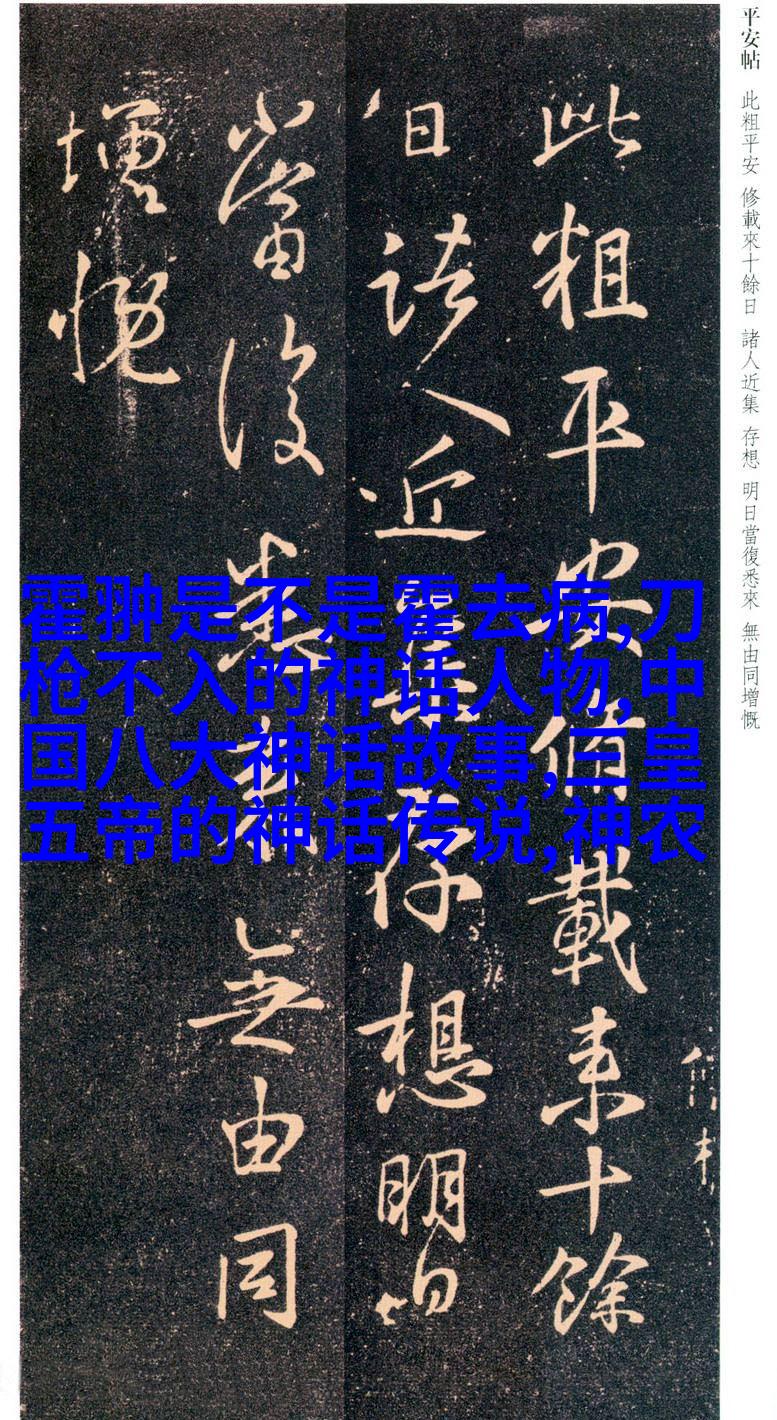 平安帖 此粗平安 修載來十餘日 諸人近集 存想 明日當復悉來 無由同增慨
此粗平安脩載来十餘
日諸人近集存想明日
當復悉来無由同
增慨
霍翀是不是霍去病,刀
枪不入的神话人物,中
国八大神话故事,三皇
五帝的神话传说,神农